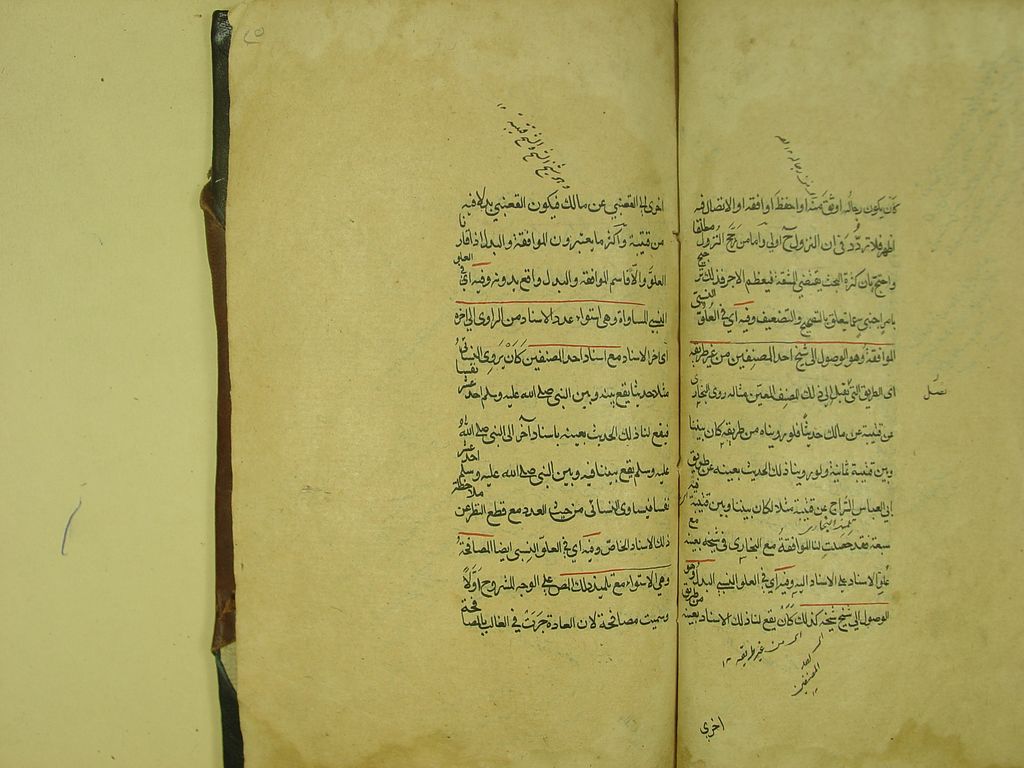 كأن يكون رجاله اوثق منه او احفظ او افقه او الاتصال فيه
اظهر فلا تردد فى ان النزول ح اولى واما من رجح النزول مطلقا
واحتج بان كثرة البحث يقتضى المشقة فيعظم الاجر فذلك ترجيح
بامر اجنبي عما يتعلق بالتصحيح والتضعيف وفيه اى فى العلو النسبي
الموافقة وهو الوصول الى شيخ احد المصنفين من غير طريقه
اى الطريق التى تصل الى ذلك المصنف المعين مثاله روى البخارى
عن قتيبة عن مالك حديثا فلو رويناه من طريقه كان بيننا
وبين قتيبة ثمانية ولو روينا ذلك الحديث بعينه من طريق
ابى العباس السراج عن قتيبة مثلا لكان بيننا وبين قتيبة فيه
سبعة فقد حصلت لنا الموافقة مع البخارى فى شيخه بعينه مع
علو الاسناد على الاسناد اليه وفيه اى فى العلو النسبي البدل وهو
الوصول الى شيخ شيخه كذلك كأن يقع لنا ذلك الاسناد بعينه من طريق
من غير طريقه ١٢
المصنفين ١٢
اخرى
وهو شيخ الشيخ والشيخ قتيبة ١٢
اخرى الى القعنبي عن مالك فيكون القعنبي بدلا فيه
من قتيبة واكثر ما يعتبرون الموافقة والبدل اذا قارنا
العلو والا فاسم الموافقة والبدل واقع بدونه وفيه اى فى العلو
النسبي المساواة وهى استواء عدد الاسناد من الراوى الى اخره
اى اخر الاسناد مع اسناد احد المصنفين كأن يروى النسائى
مثلا حديثا يقع بينه وبين النبى صلى الله عليه وسلم احد عشر نفسا
فيقع لنا ذلك الحديث بعينه باسناد آخر الى النبى صلى الله
عليه وسلم يقع بيننا فيه وبين النبى صلى الله عليه وسلم احد عشر
نفسا فيساوى النسائى من حيث العدد مع قطع النظر عن ملاحظة
ذلك الاسناد الخاص وفيه اى فى العلو النسبي ايضا المصافحة
وهى الاستواء مع تلميذ ذلك المص على الوجه المشروح اولا
وسميت مصافحة لان العادة جرت فى الغالب بالمصافحة